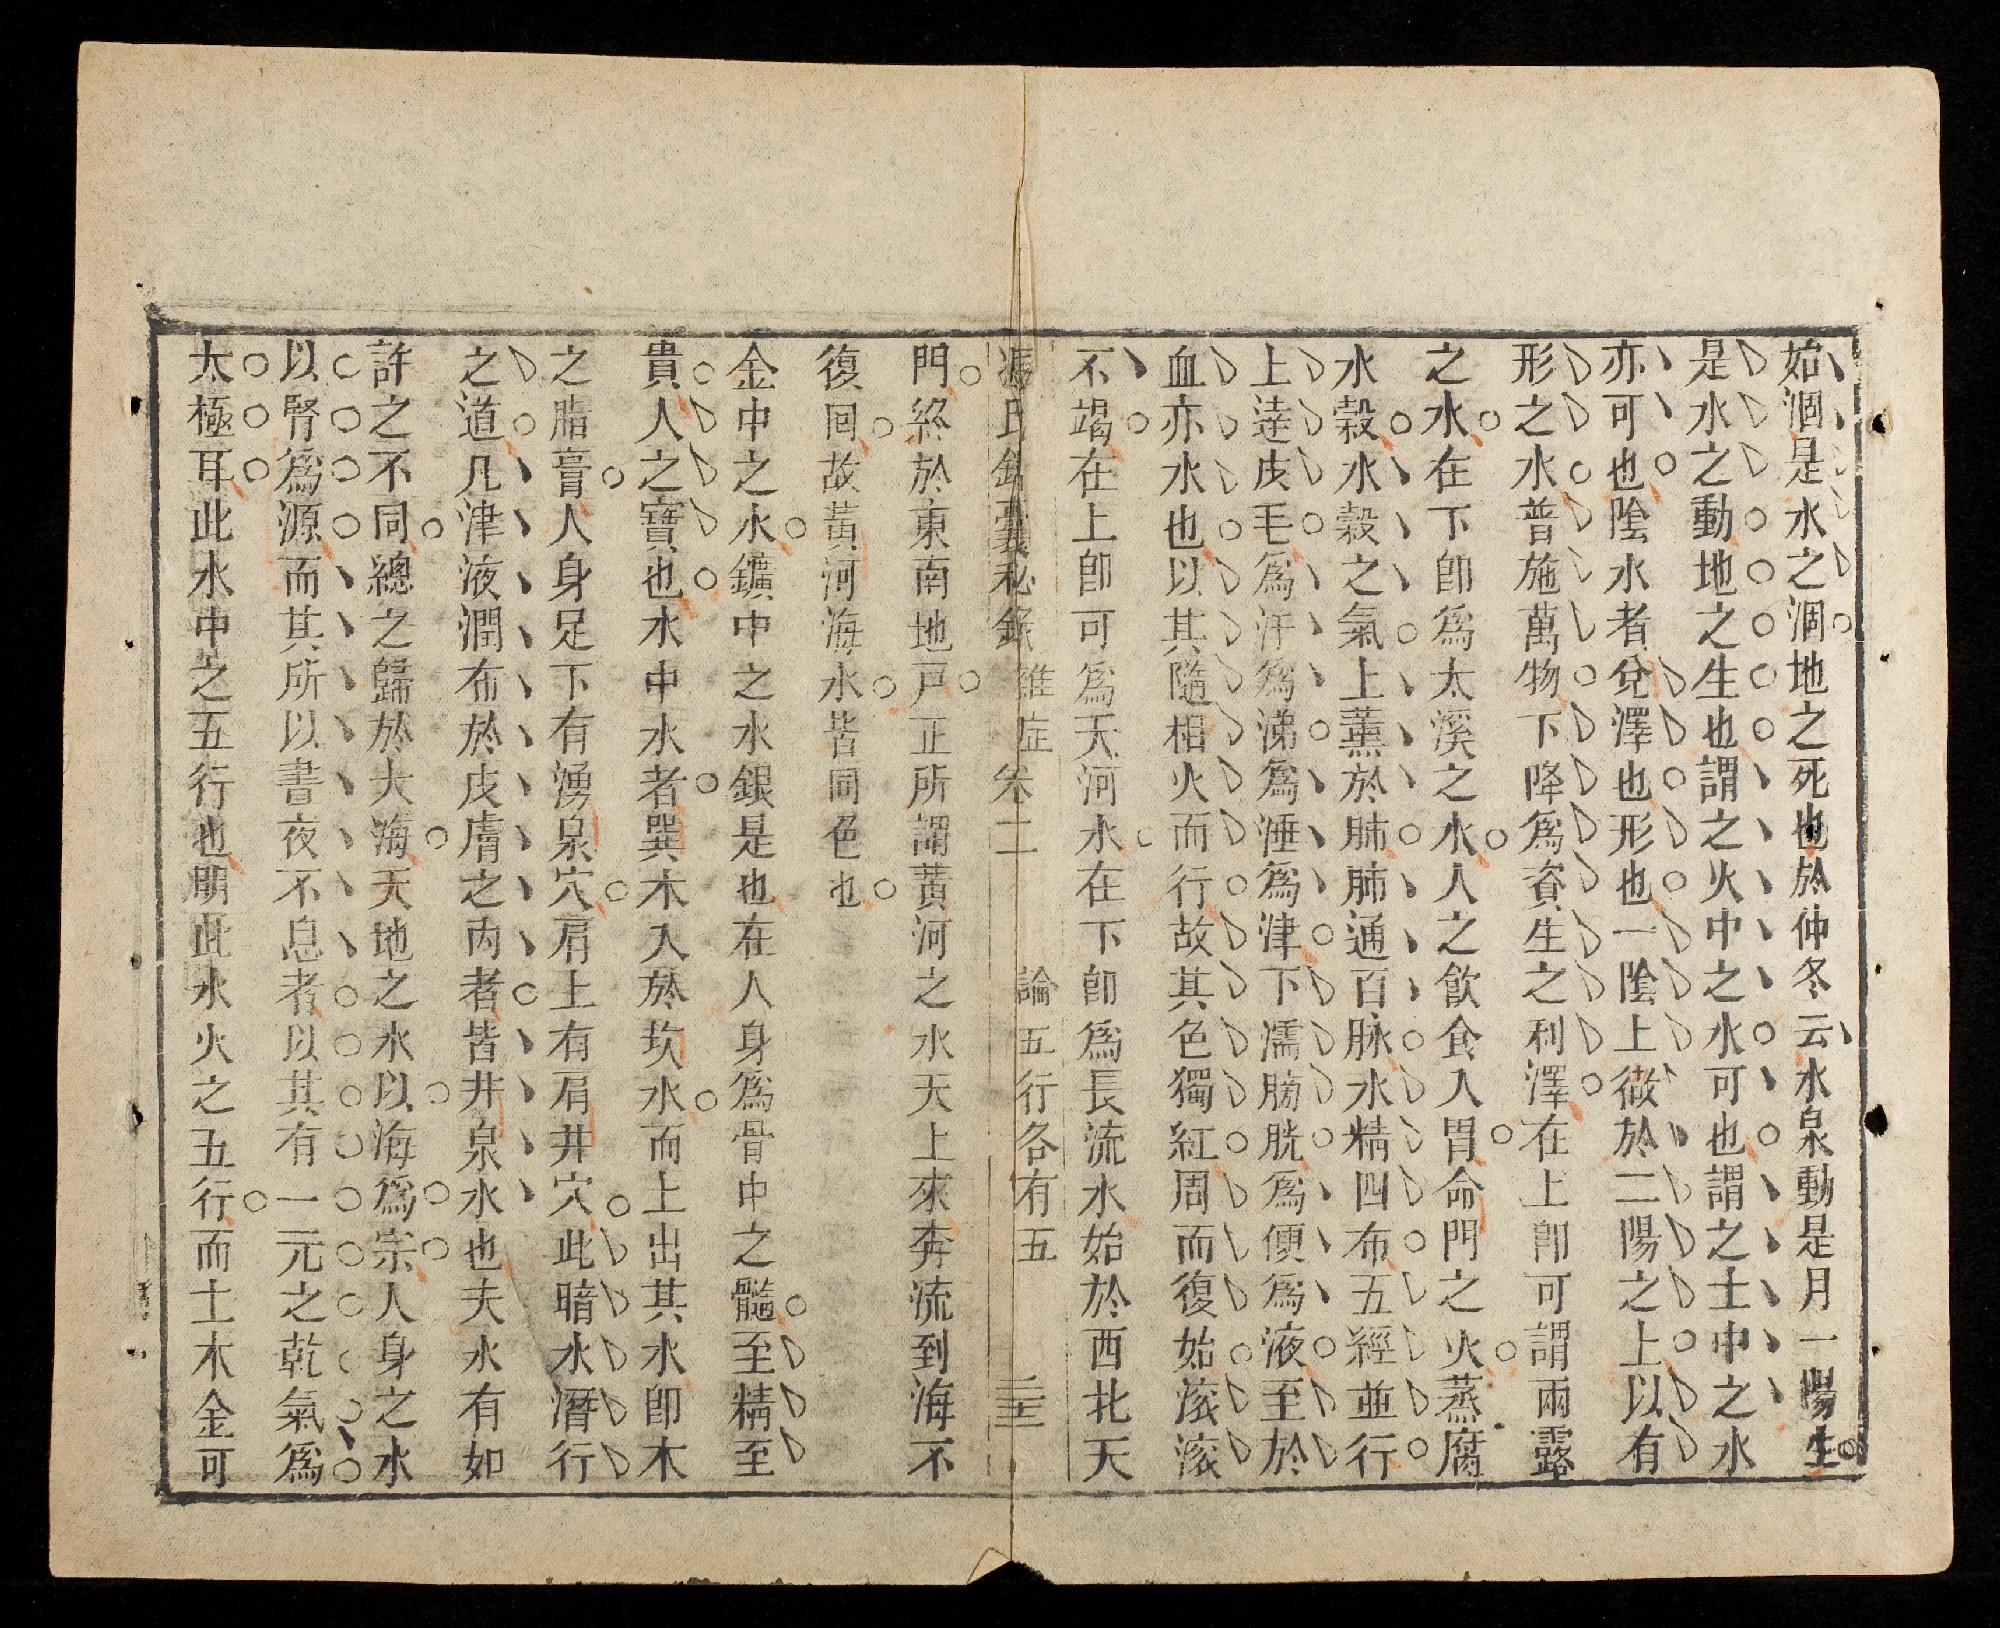 始涸是水之涸地之死也於仲冬云水泉動是月一陽生
是水之動地之生也謂之火中之水可也謂之土中之水
亦可也陰水者兌澤也形也一陰上徹於二陽之上以有
形之水普施萬物下降爲資生之利澤在上卽可謂雨露
之水在下卽爲太溪之水人之飮食入胃命門之火蒸腐
水穀水穀之氣上薰於肺肺通百脉水精四布五經並行
上達皮毛爲汗爲涕爲唾爲津下濡膀胱爲便爲液至於
血亦水也以其隨相火而行故其色獨紅周而復始滚滚
不竭在上卽可爲天河水在下卽爲長流水始於西北天
馮氏錦囊秘錄 雜症 卷二 論五行各有五 三十三
門終於東南地戸正所謂黃河之水天上來奔流到海不
復回故黃河海水皆同色也
金中之水鑛中之水銀是也在人身爲骨中之髓至精至
貴人之寶也水中水者巽木入於坎水而上出其水卽木
之脂膏人身足下有湧泉穴肩上有肩井穴此暗水潛行
之道凡津液潤布於皮膚之内者皆井泉水也夫水有如
許之不同總之歸於大海天地之水以海爲宗人身之水
以腎爲源而其所以晝夜不息者以其有一元之乾氣爲
太極耳此水中之五行也明此水火之五行而土木金可